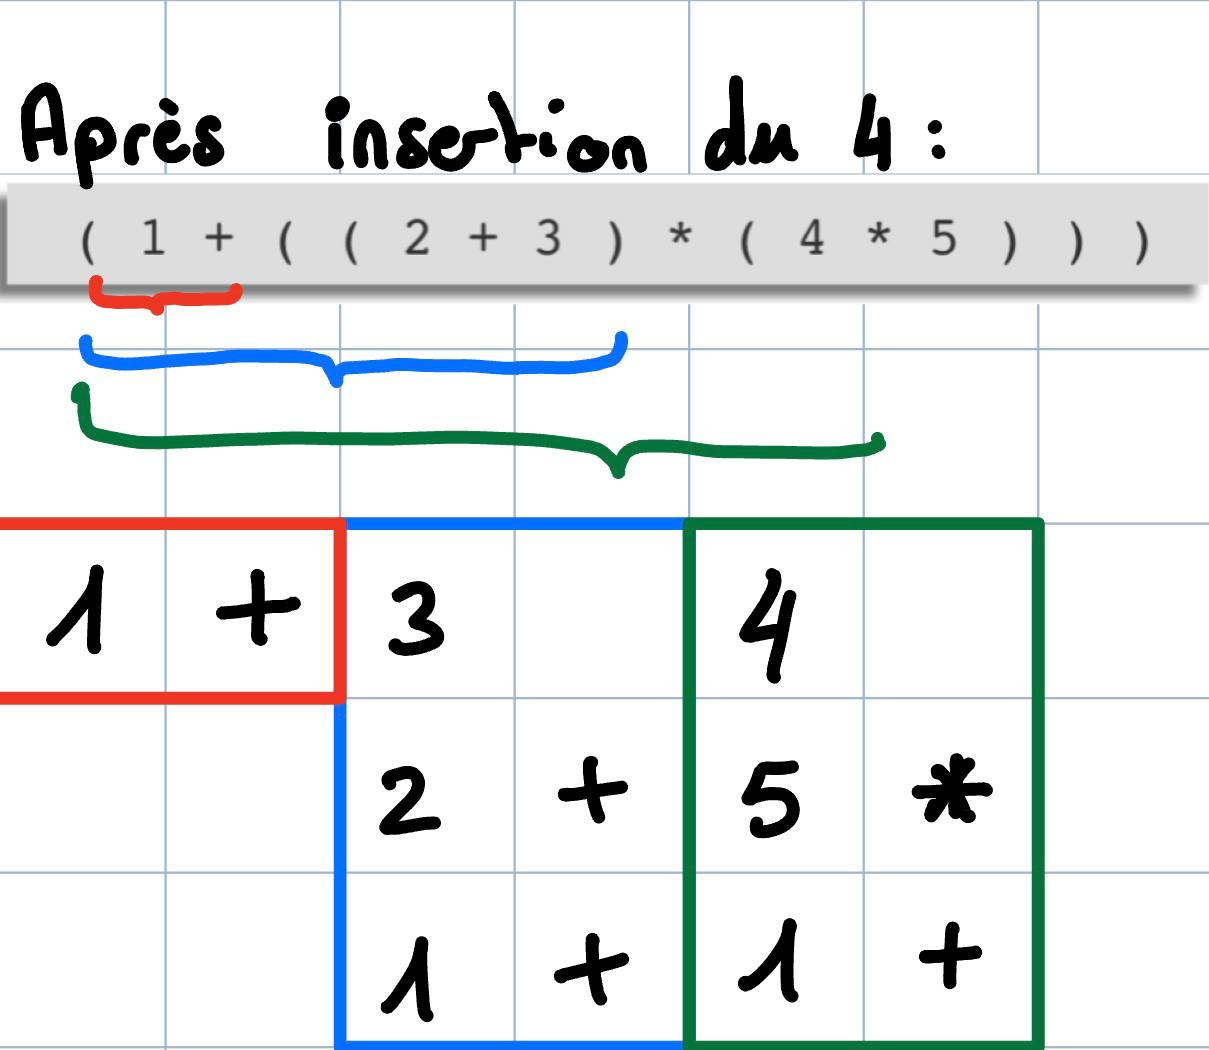 Après insertion du 4 :
( 1 + ( ( 2 + 3 ) * ( 4 * 5 ) ) )
1 + 3 4
2 + 5 *
1 + 1 +